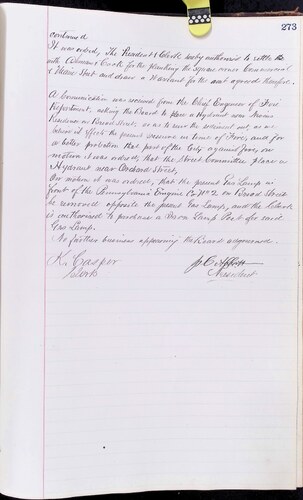 273
continued
It was ordered, The President & Clerk hereby authorized to settle the
with Coleman Cook for the planking the Square corner Commercial
& Main Street and draw a Warrant for the amt agreed therefor.
A Communication was received from the Chief Engineer of Fire
Department, asking the Board to place a Hydrant near
Residence on Broad Street, so as to meet the requirement out, as at
present it effects the present pressure in time of Fires, and for
a better protection that part of the City against fires, on
motion it was ordered, that the Street Committee place a
Hydrant near Orchard Street,
On motion it was ordered, that the present Gas Lamp in
front of the Pennsylvania Engine Co No 2 on Broad Street
be removed opposite the present Gas Lamp, and the Clerk
is authorized to purchase a Iron Lamp Post for said
Gas Lamp.
No farther business appearing the Board adjourned.
K. Casper
Clerk
President